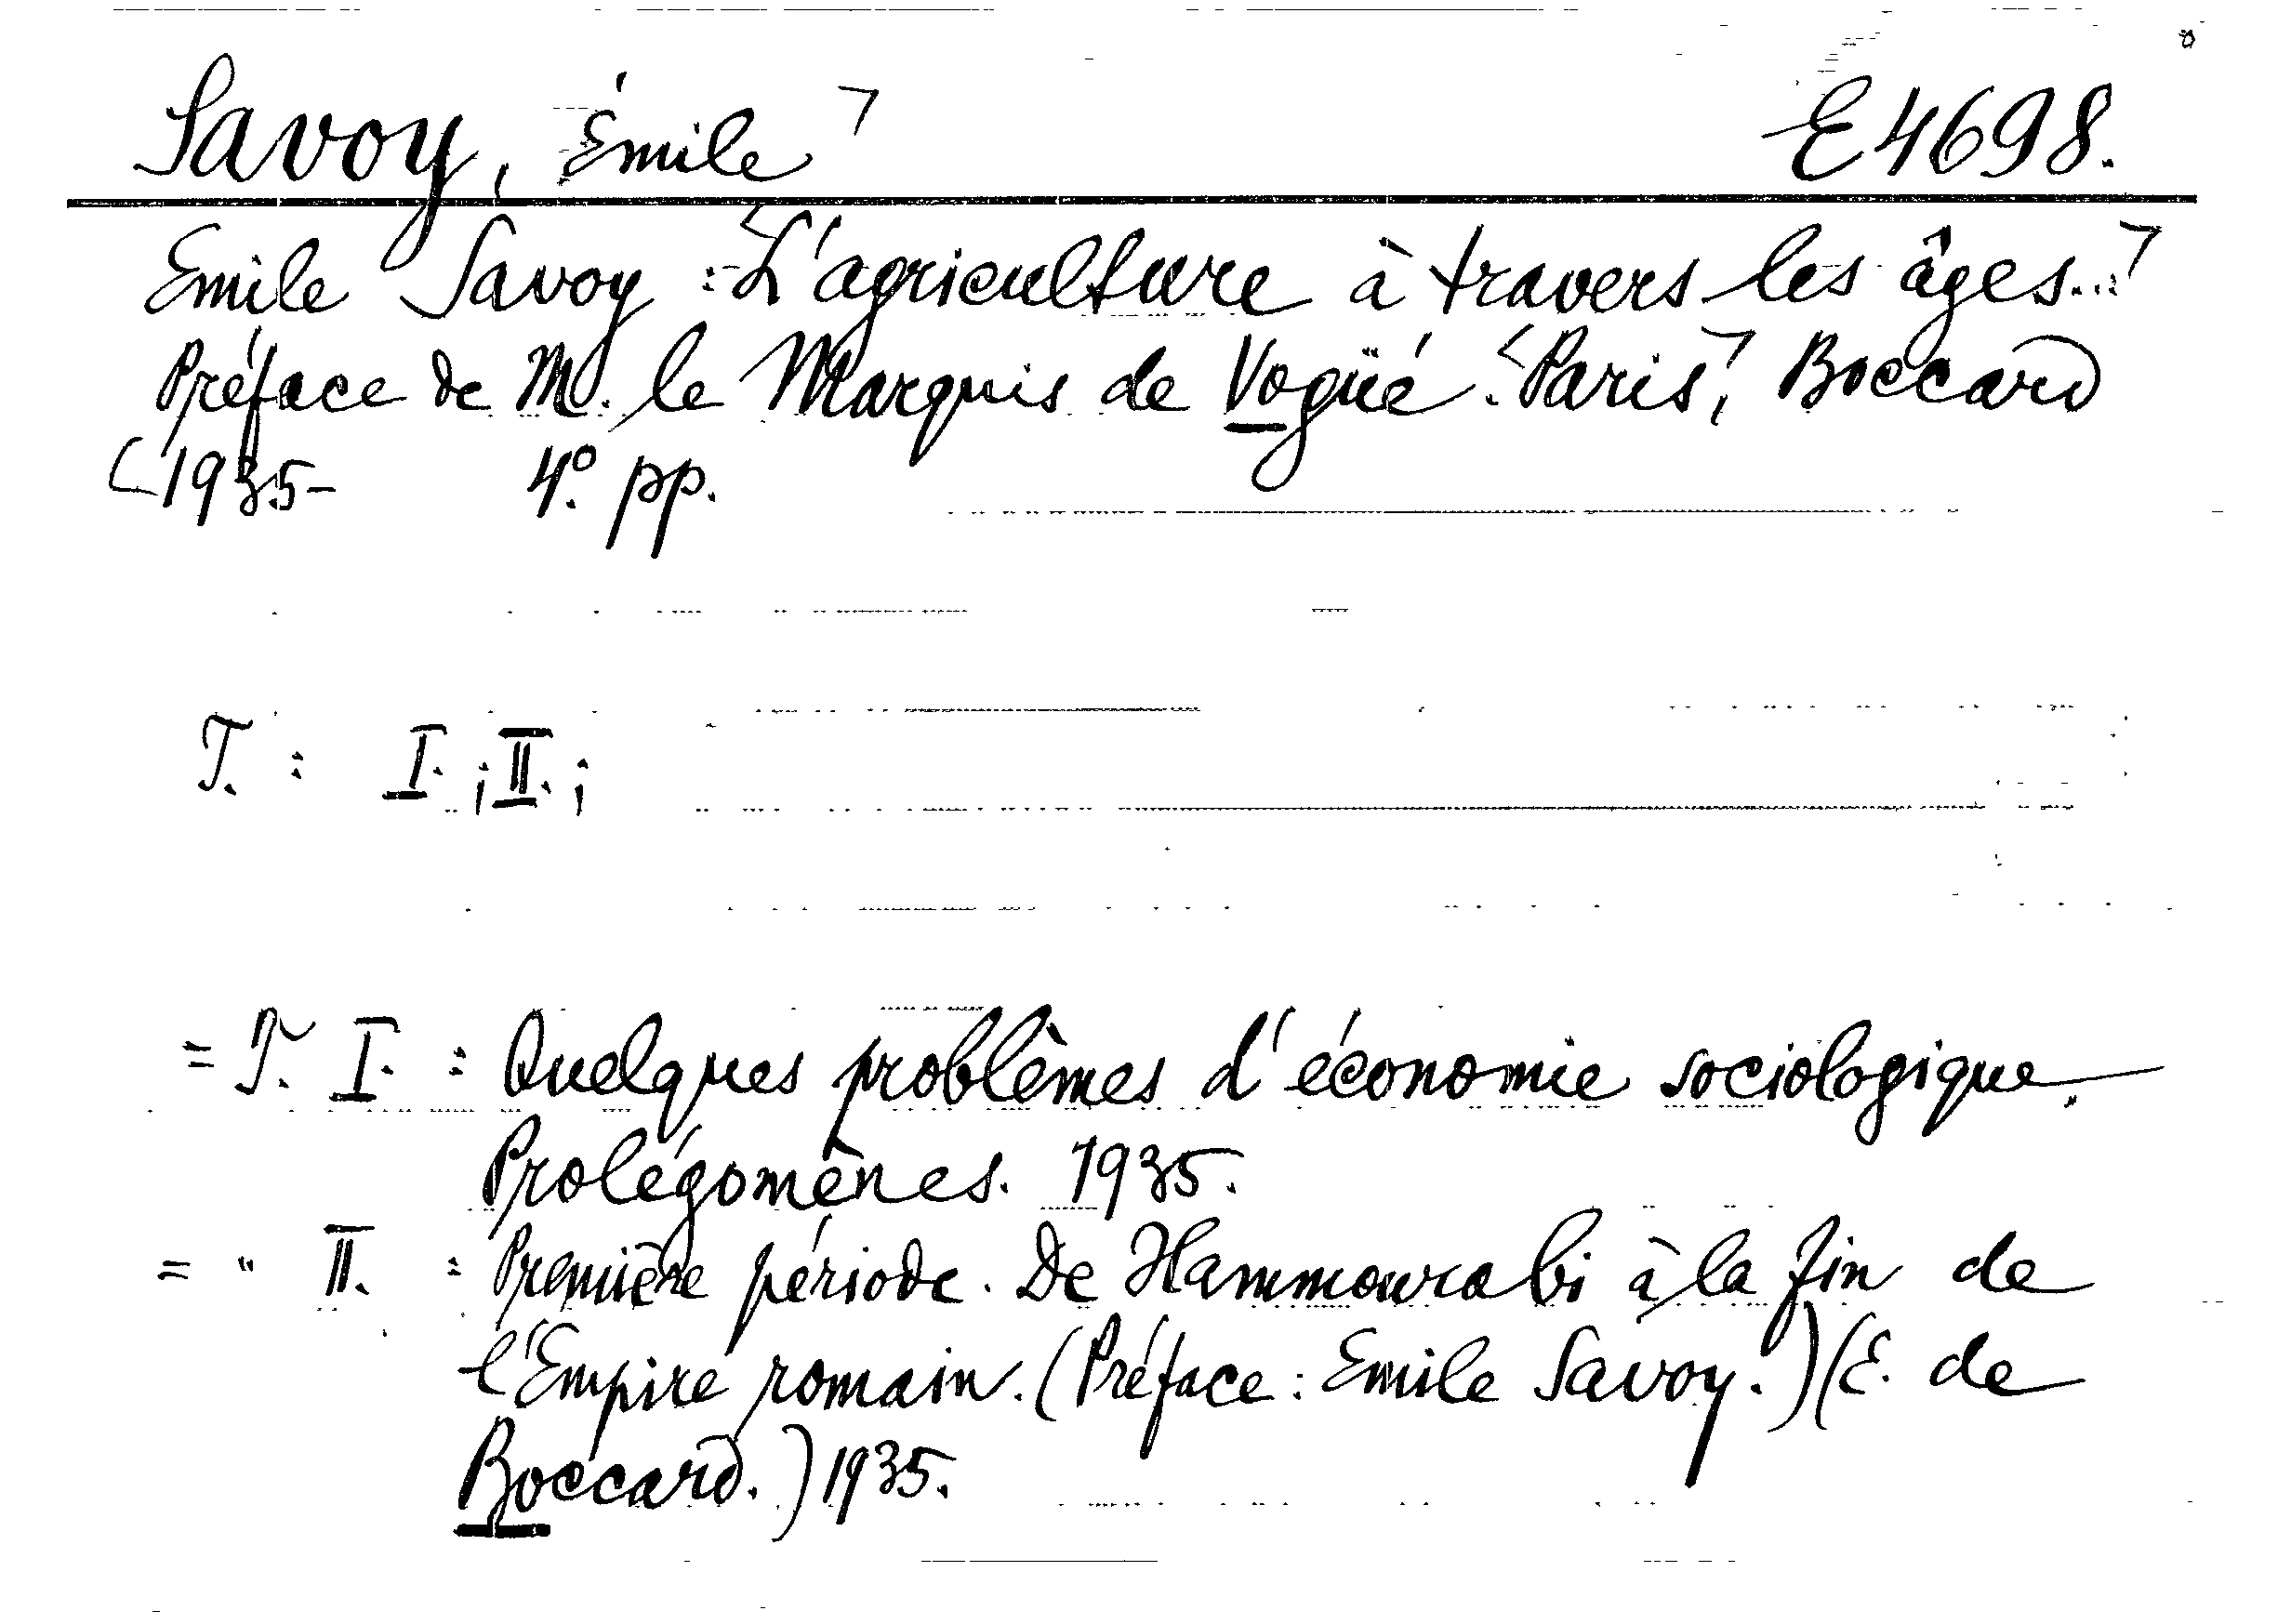 Savoy, Émile ⌝ E 4698.
Emile Savoy : L'agriculture à travers les âges...
Préface de M. le Marquis de Vogüé. Paris, Boccard
1935- 4°. pp.
T. : I. ; II. ;
= T. I. : Quelques problèmes d'économie sociologique.
Prolégomènes. 1935.
= " II. : Première période. De Hammourabi à la fin de
l'Empire romain. (Préface : Emile Savoy.) (E. de
Boccard.) 1935.